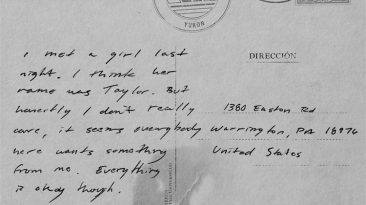 YUKON
DIRECCIÓN
i met a girl last
night. I think her
name was Taylor. But
honestly I don't really
care, it seems everybody
here wants something
from me. Everything
is okay though.
1380 Easton Rd
Warrington, PA 18976
United States